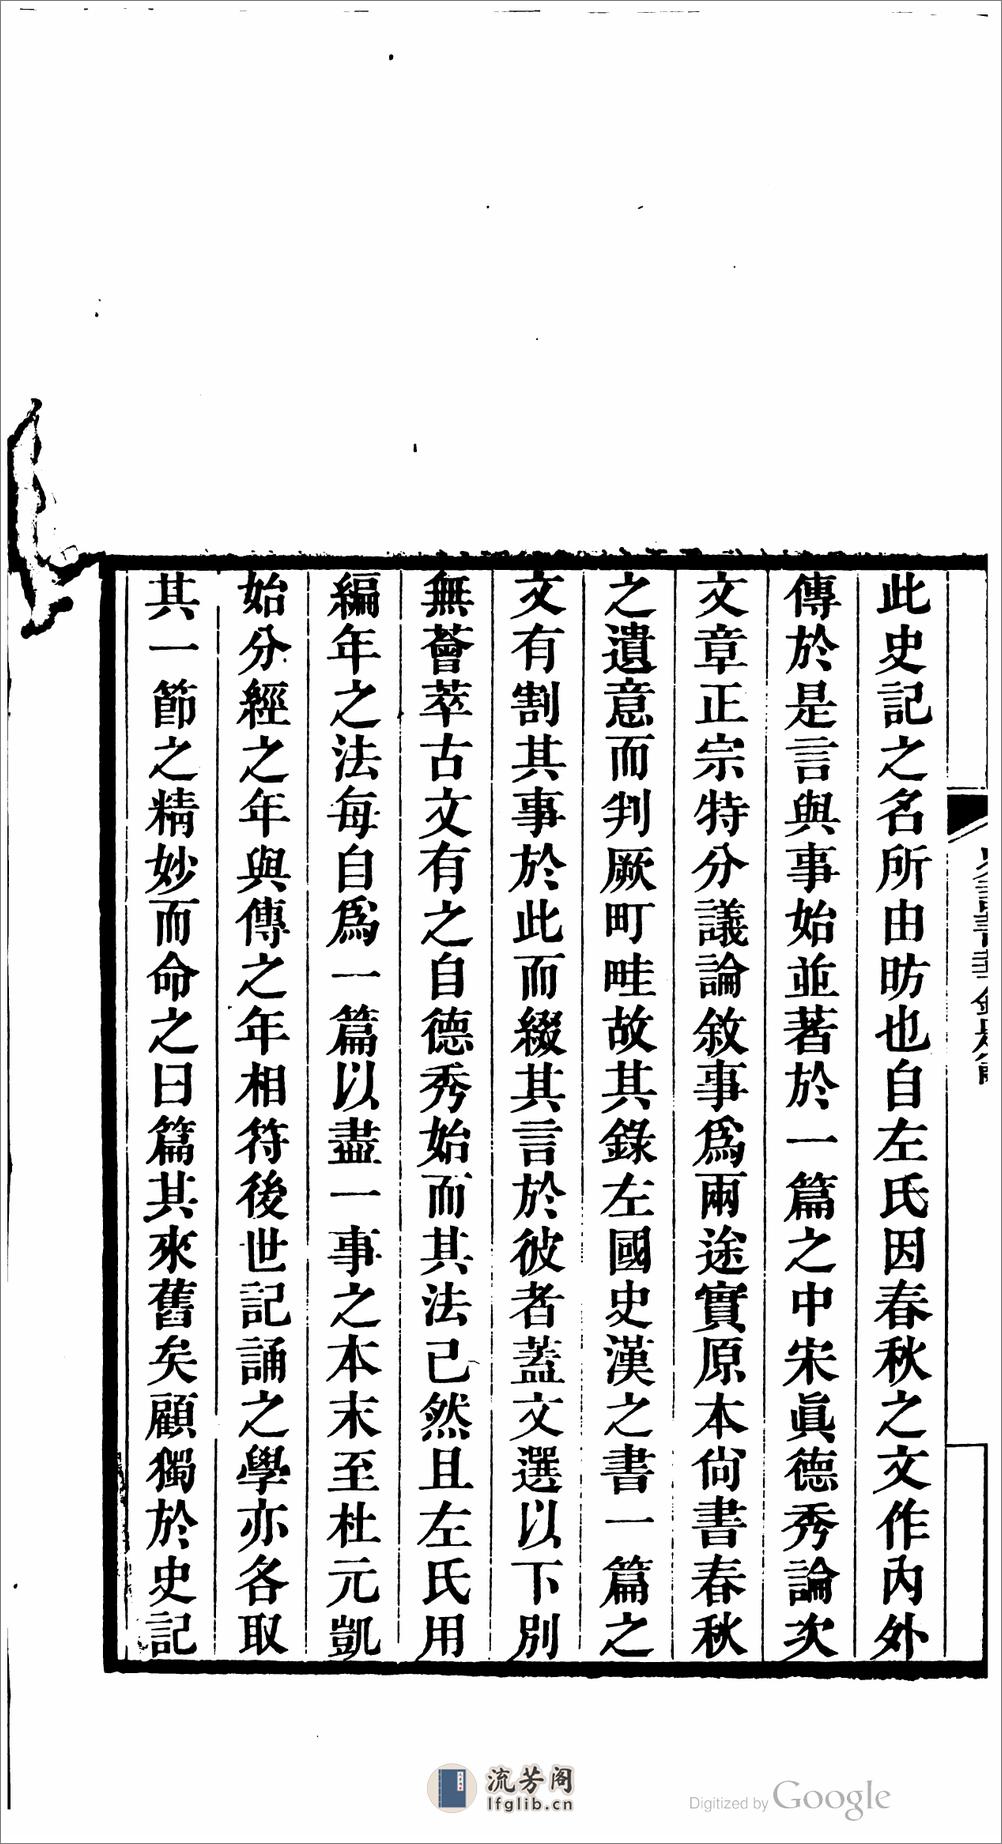 此史記之名所由昉也自左氏因春秋之文作內外
傳於是言與事始並著於一篇之中宋眞德秀論次
文章正宗特分議論敘事爲兩途實原本尙書春秋
之遺意而判厥町畦故其錄左國史漢之書一篇之
文有割其事於此而綴其言於彼者蓋文選以下別
無薈萃古文有之自德秀始而其法已然且左氏用
編年之法每自爲一篇以盡一事之本末至杜元凱
始分經之年與傳之年相符後世記誦之學亦各取
其一節之精妙而命之曰篇其來舊矣顧獨於史記
流芳阁
lfglib.cn
Digitized by Google